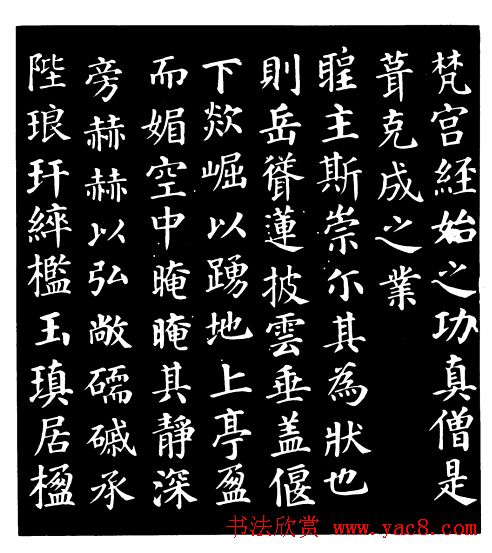 梵宮經始之功真僧是
葺克成之業
聖主斯崇尔其為狀也
則岳聳蓮披雲垂盖偃
下欻崛以踴地上亭盈
而媚空中晻晻其靜深
旁赫赫以弘敞礝磩承
陛琅玕綷檻玉瑱居楹
书法欣赏 www.yac8.com